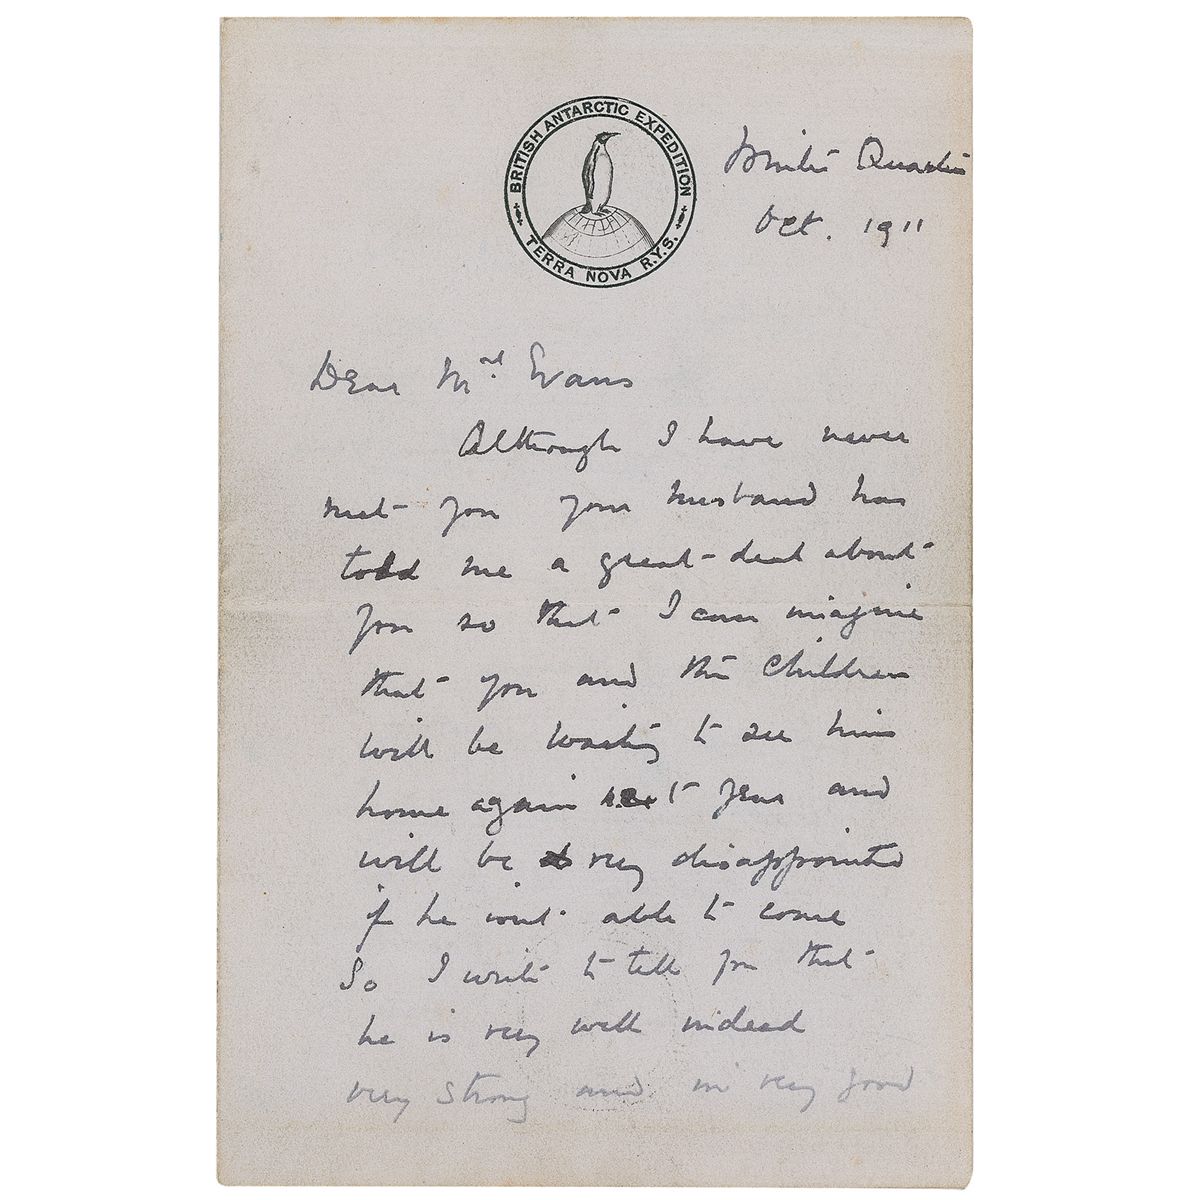 BRITISH ANTARCTIC EXPEDITION
TERRA NOVA R.Y.S.
Winter Quarters
Oct. 1911
Dear Mrs. Evans
Although I have never
met you your husband has
told me a great deal about
you so that I can imagine
that you and the children
will be wanting to see him
home again next year and
will be very disappointed
if he isn't able to come
So I write to tell you that
he is very well indeed
very strong and in very good